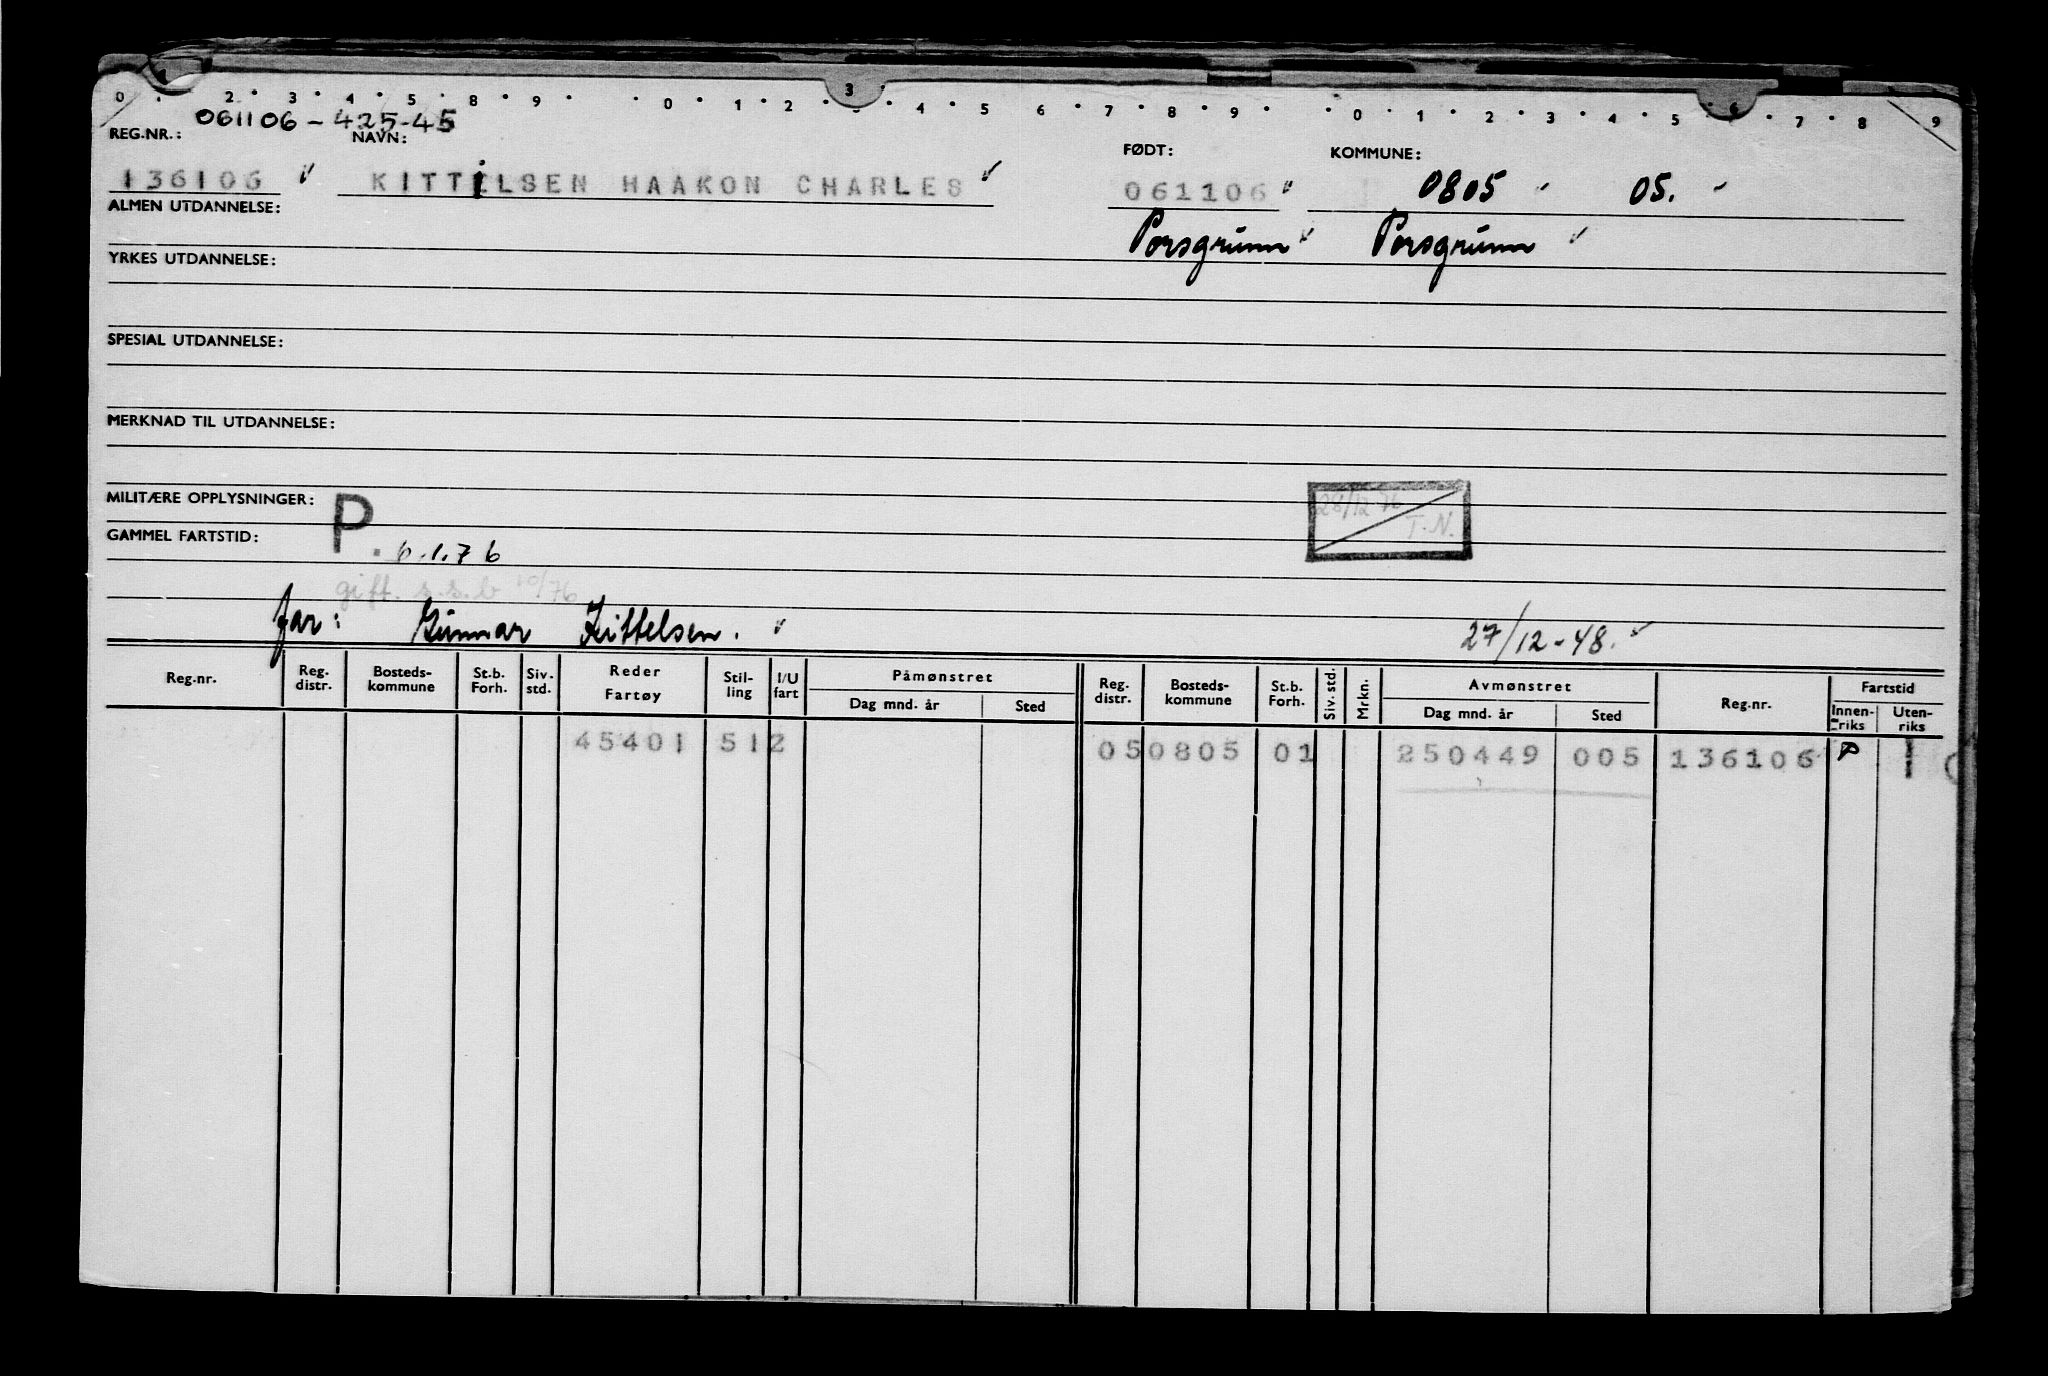 0 2 3 4 5 8 9 0 1 2 3 4 5 6 7 8 9 0 1 2 3 4 5 6 7 8 9
061106-425-45
REG.NR.: NAVN: FØDT: KOMMUNE:
136106 KITTILSEN HAAKON CHARLES 061106 0805 05.
ALMEN UTDANNELSE: Porsgrunn Porsgrunn
YRKES UTDANNELSE:
SPESIAL UTDANNELSE:
MERKNAD TIL UTDANNELSE:
MILITÆRE OPPLYSNINGER: P. 28/12 76
GAMMEL FARTSTID: T.N.
6.1.76
gift. s.s.b 10/76
far: Gunnar Kittelsen. 27/12-48.
Reg.nr. Reg. distr. Bosteds-kommune St.b. Forh. Siv. std. Reder Fartøy Stil-ling I/U fart Påmønstret Dag mnd. år Sted Reg. distr. Bosteds-kommune St.b. Forh. Siv. std. Mrkn. Avmønstret Dag mnd. år Sted Reg.nr. Fartstid Innen-riks Uten-riks
45401 512 050805 01 250449 005 136106 P 1